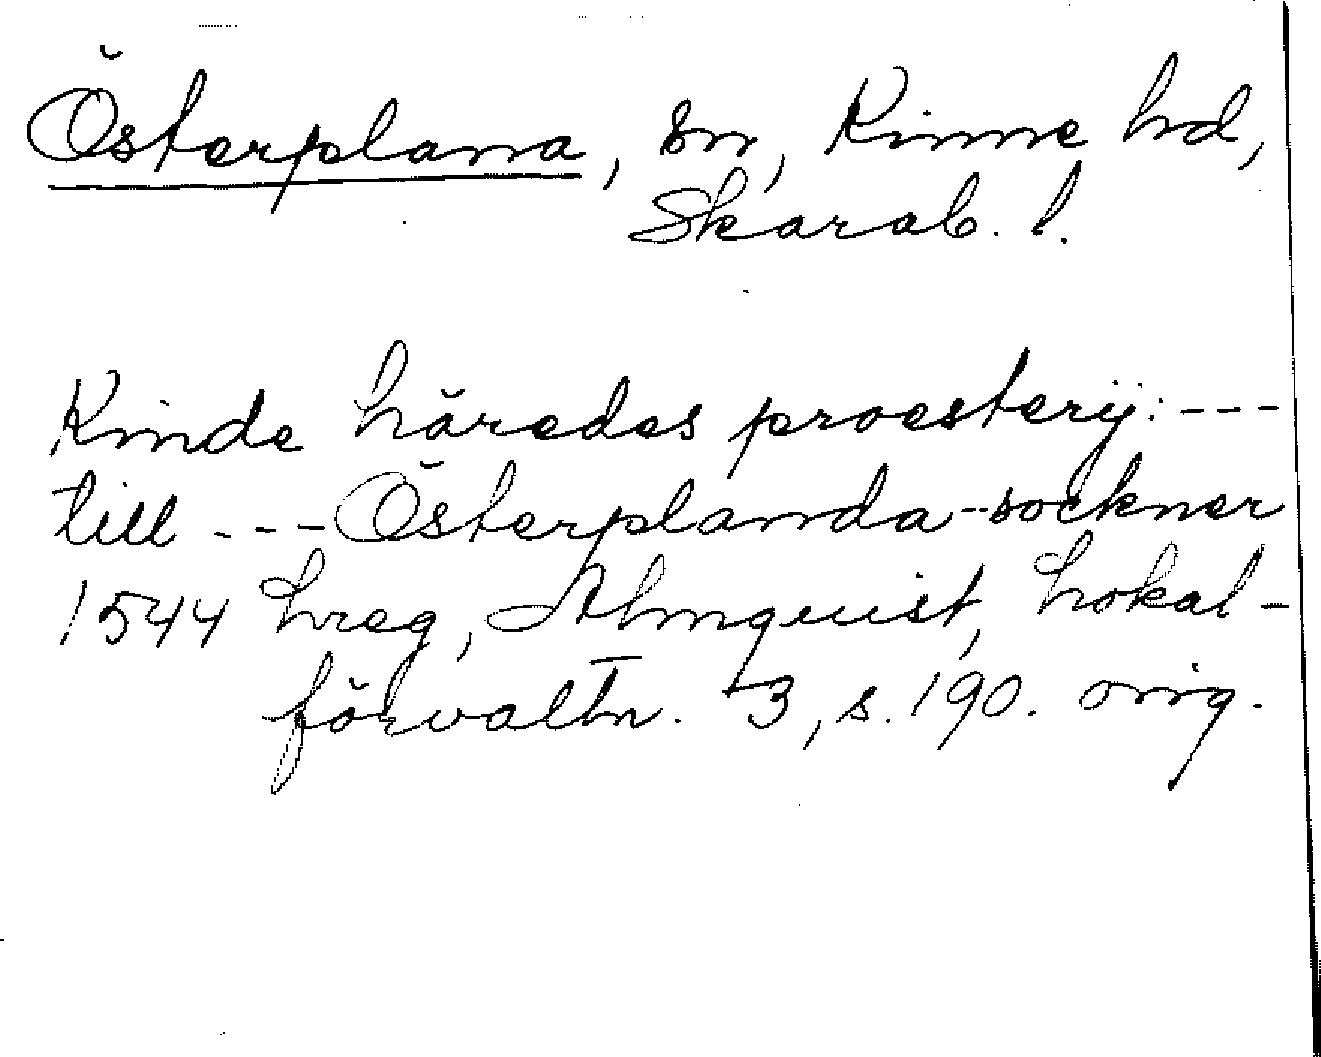 Österplana, sn, Kinne hd,
Skarab. l.
Kinde häredes proestery: ---
till --- Österplanda sockner
1544 hreg, Almquist, Lokal-
förvaltn. 3, s. 190. orig.